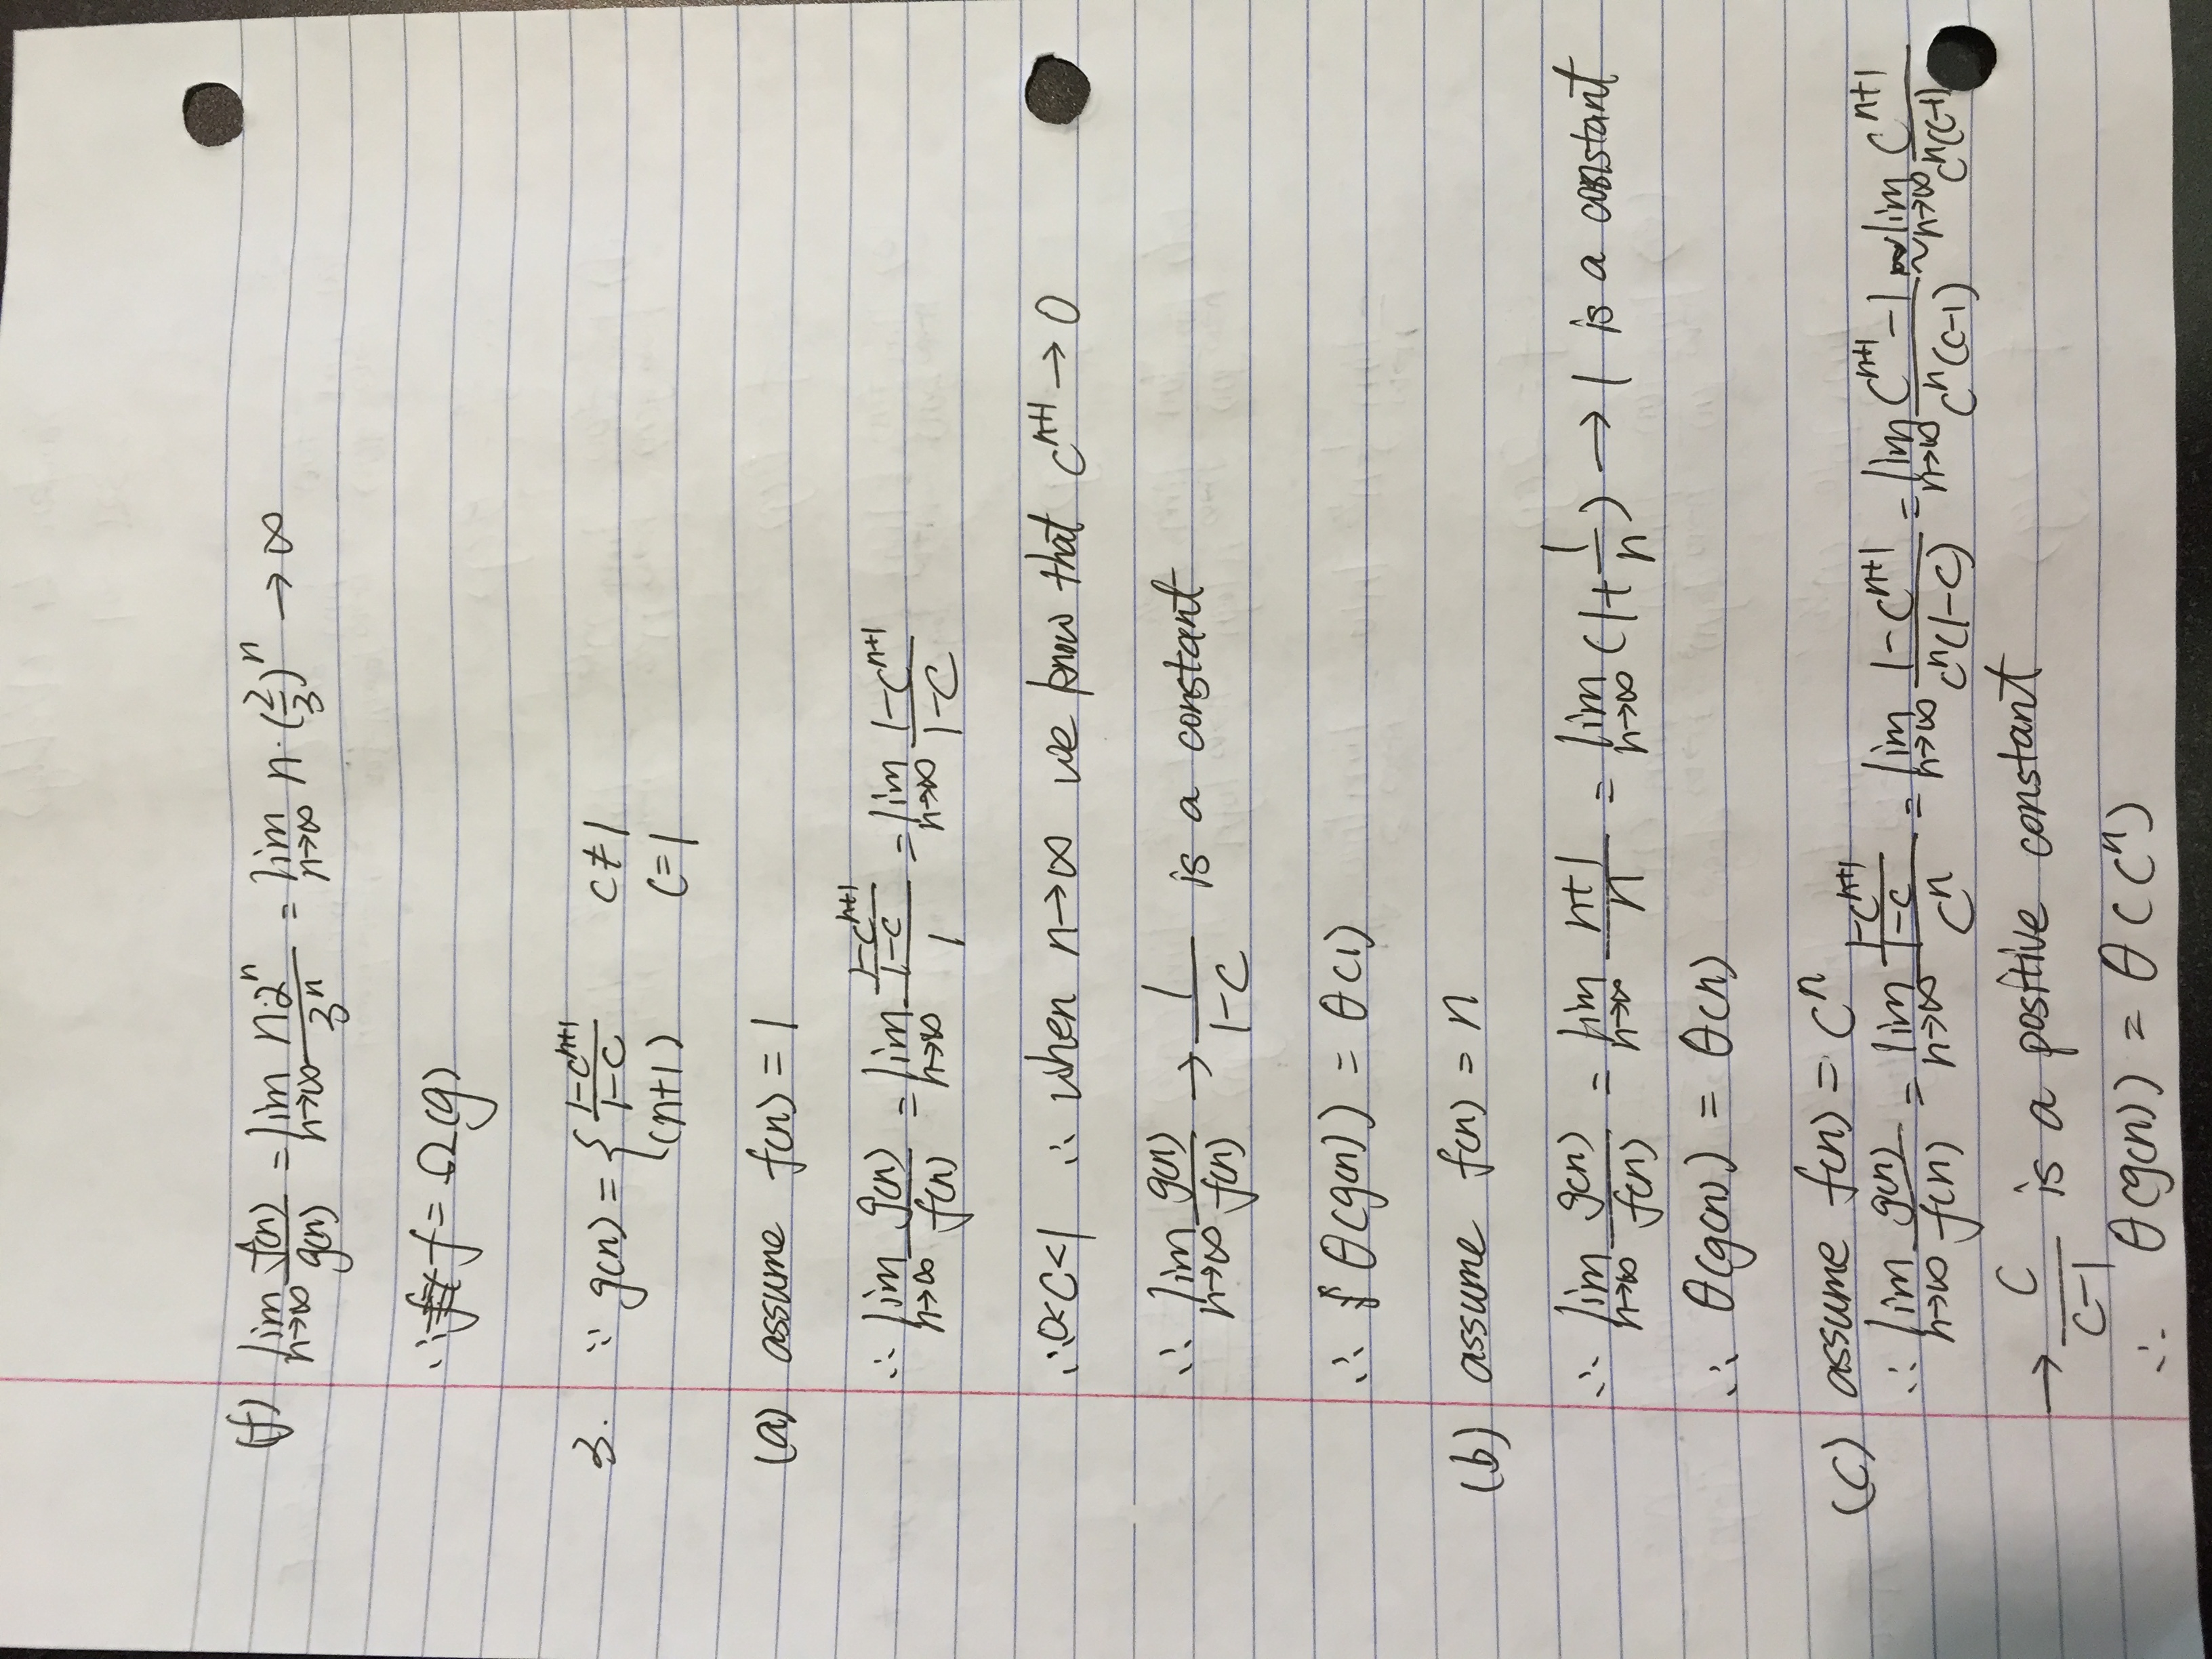 (f) lim n→∞ f(n)/g(n) = lim n→∞ n·2^n/3^n = lim n→∞ n·(2/3)^n → ∞
∴ f = Ω(g)
3. ∵ g(n) = { (1-c^(n+1))/(1-c) c≠1
(n+1) c=1
(a) assume f(n) = 1
∴ lim n→∞ g(n)/f(n) = lim n→∞ ((1-c^(n+1))/(1-c))/1 = lim n→∞ (1-c^(n+1))/(1-c)
∵ 0<c<1 ∴ when n→∞ we know that c^(n+1) → 0
∴ lim n→∞ g(n)/f(n) → 1/(1-c) is a constant
∴ θ(g(n)) = θ(1)
(b) assume f(n) = n
∴ lim n→∞ g(n)/f(n) = lim n→∞ (n+1)/n = lim n→∞ (1+1/n) → 1 is a constant
∴ θ(g(n)) = θ(n)
(c) assume f(n) = c^n
∴ lim n→∞ g(n)/f(n) = lim n→∞ ((1-c^(n+1))/(1-c))/c^n = lim n→∞ (1-c^(n+1))/(c^n(1-c)) = lim n→∞ (c^(n+1)-1)/(c^n(c-1)) ~ lim n→∞ c^(n+1)/(c^n(c-1))
→ c/(c-1) is a positive constant
∴ θ(g(n)) = θ(c^n)